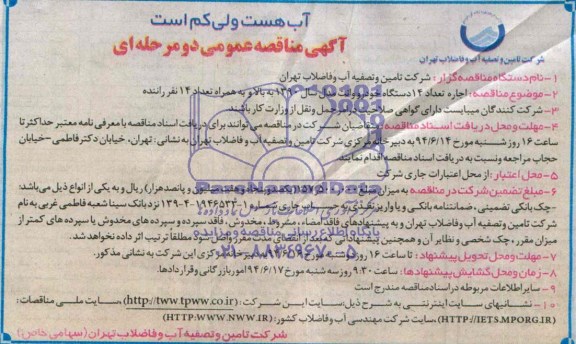 آب هست ولی کم است
آگهی مناقصه عمومی دو مرحله ای
شرکت تامین و تصفیه آب و فاضلاب تهران
۱ – نام دستگاه مناقصه گزار : شرکت تامین و تصفیه آب و فاضلاب تهران
۲ – موضوع مناقصه : اجاره تعداد ۱۴ دستگاه خودرو وانت مدل سال ۱۳۹۰ به بالا و به همراه تعداد ۱۴ نفر راننده
۳ – شرکت کنندگان میبایست دارای گواهی صلاحیت حمل و نقل از وزارت کار باشند
۴ – مهلت و محل دریافت اسناد مناقصه : متقاضیان شرکت در مناقصه می توانند برای دریافت اسناد مناقصه با معرفی نامه معتبر حداکثر تا
ساعت ۱۶ روز شنبه مورخ ۹۴/۶/۱۴ به دبیرخانه مرکزی شرکت تامین و تصفیه آب و فاضلاب تهران به نشانی : تهران، خیابان دکتر فاطمی – خیابان
حجاب مراجعه ونسبت به دریافت اسناد مناقصه اقدام نمایند
۵ – محل اعتبار : از محل اعتبارات جاری شرکت
۶ – مبلغ تضمین شرکت در مناقصه به میزان مبلغ ریال و به یکی از انواع ذیل می باشد:
–چک بانکی تضمینی، ضمانتنامه بانکی و یا واریز نقدی به حساب جاری شماره ۱–۱۹۴۶۵۳۳–۴–۱۳۹ نزد بانک سینا شعبه فاطمی غربی به نام
شرکت تامین و تصفیه آب و فاضلاب تهران و به پیشنهادهای فاقد امضاء، مشروط، مخدوش، فاقد سپرده و سپرده های مخدوش یا سپرده های کمتر از
میزان مقرر، چک شخصی و نظایر آن و همچنین پیشنهاداتی که بعد از انقضای مدت مقرر واصل شود مطلقا ترتیب اثر داده نخواهد شد.
۷ – مهلت و محل تحویل پیشنهاد : تا ساعت ۱۶ روز مورخ مرکزی این شرکت به نشانی مذکور.
۸ – زمان و محل گشایش پیشنهادها : ساعت ۹:۳۰ روز سه شنبه مورخ ۹۴/۶/۱۷ امور بازرگانی و قراردادها.
۹ – سایر اطلاعات مربوطه در اسناد مناقصه مندرج است
۱۰ – نشانیهای سایت اینترنتی به شرح ذیل : سایت این شرکت : (http://tww.tpww.co.ir) سایت ملی مناقصات :
(HTTP://IETS.MPORG.IR)، سایت شرکت مهندسی آب و فاضلاب کشور: (HTTP:WWW.NWW.IR)
شرکت تامین و تصفیه آب و فاضلاب تهران (سهامی خاص)
پایگاه اطلاع رسانی مناقصه و مزایده
۰۲۱-۸۸۳۴۹۶۷۰